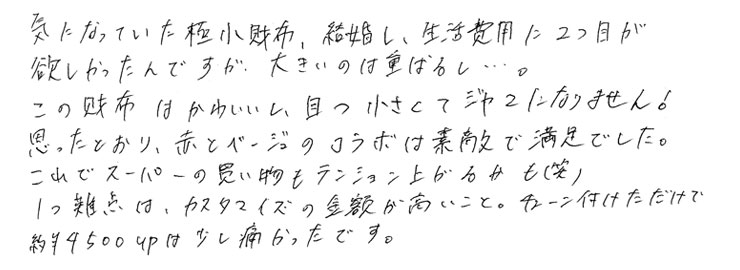 気になっていた極小財布、結婚し、生活費用に2つ目が
欲しかったんですが、大きいのは重ばるし…。
この財布はかわいいし、且つ小さくてジャマになりません!
思ったとおり、赤とベージュのコラボは素敵で満足でした。
これでスーパーの買い物もテンション上がるかも(笑)
1つ難点は、カスタマイズの金額が高いこと。チェーン付けただけで
約¥4500upは少し痛かったです。